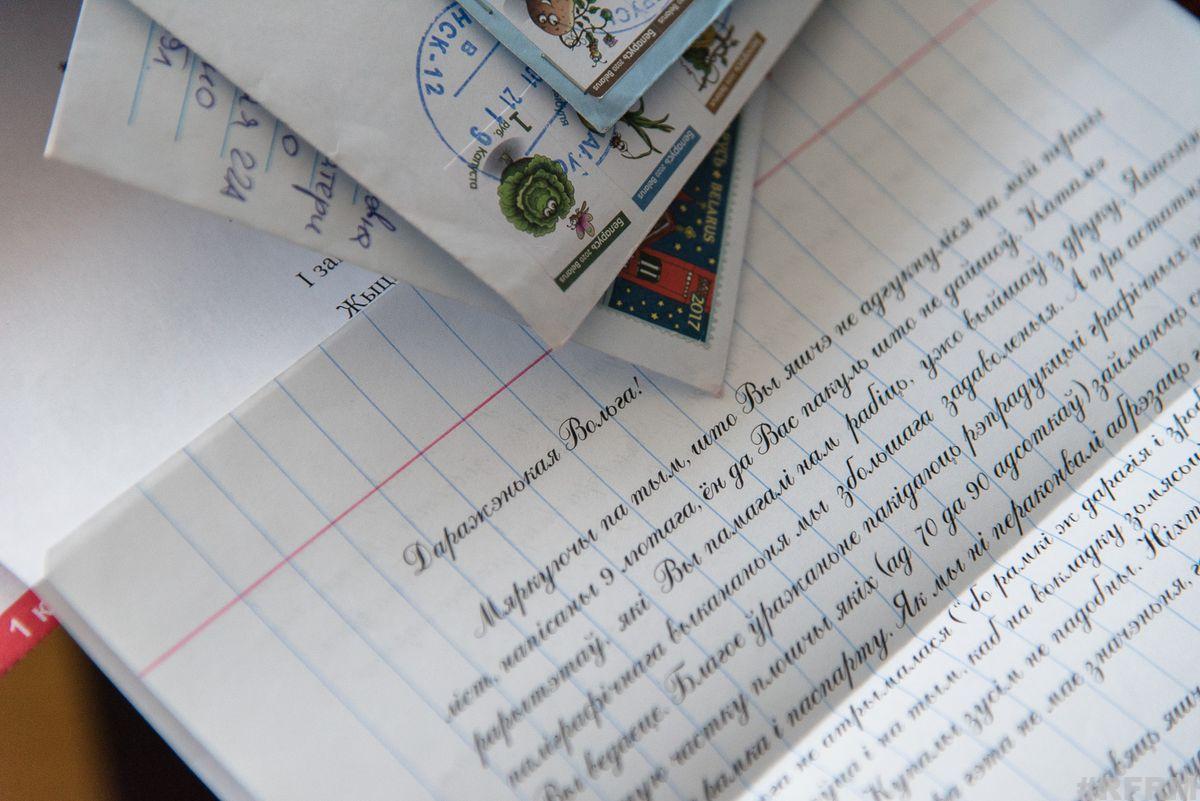 НСК-12
В
21
19
1 руб.
Капуста
Беларусь 2020 Belarus
Беларусь 2020 Belarus
Беларусь 2020 Belarus
Беларусь 2020 Belarus
BELARUS
2017
я 22д
І за
Жыц
1 к
Даражэнькая Вольга!
Мяркуючы па тым, што Вы яшчэ не адгукнуліся на мой першы
ліст, напісаны 9 лютага, ён да Вас пакуль што не дайшоў. Каталог
рарытэтаў, які Вы памагалі нам рабіць, ужо выйшаў з друку. Якасцю
паліграфічнага выкананьня мы збольшага задаволеныя. А пра астатняе
Вы ведаеце. Благое ўражаньне пакідаюць рэпрадукцыі графічных
частку плошчы якіх (ад 70 да 90 адсоткаў) займаюць
рамка і паспарту. Як мы ні пераконвалі абрэзаць
не атрымалася ("бо рамкі ж дарагія і
і на тым, каб на вокладку зьмясьці
Купалы зусім не падобны. Ніхт
гэта не мае значэньня,